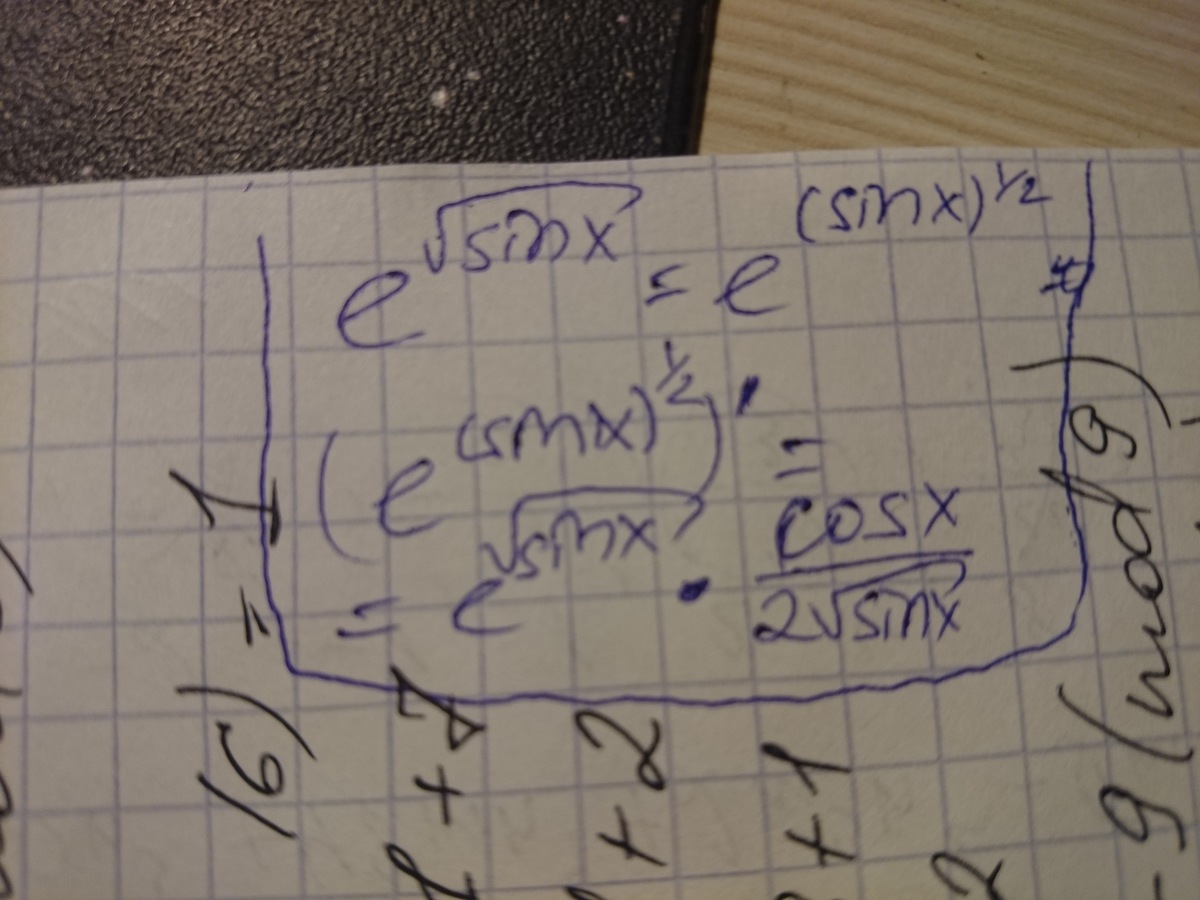 e^√sinx = e^(sinx)^1/2
(e^(sinx)^1/2)' =
= e^√sinx · cosx / 2√sinx
+ 2
+ 1
9 (mod 9)